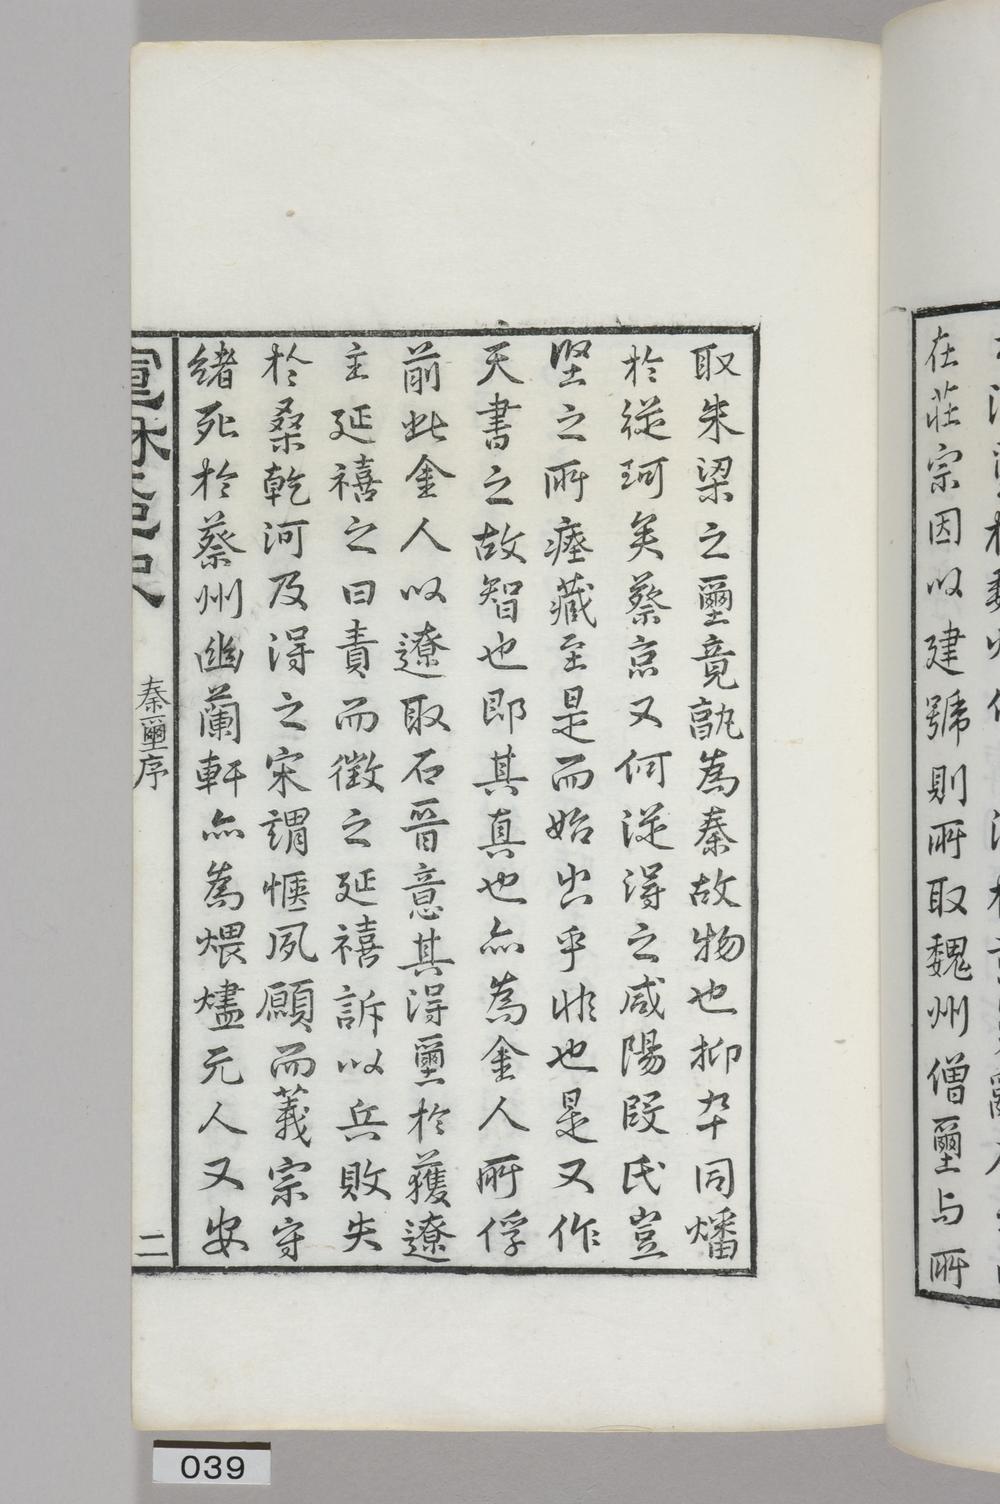 在莊宗因以建號則所取魏州僧璽与所
取朱梁之璽竟孰為秦故物也抑卒同燔
於從珂矣蔡京又何從得之咸陽段氏豈
堅之所瘞藏至是而始出乎非也是又作
天書之故智也即其真也亦為金人所俘
前此金人以遼取石晉意其得璽於獲遼
主延禧之日責而徵之延禧訴以兵敗失
於桑乾河及得之宋謂愜夙願而義宗守
緒死於蔡州幽蘭軒亦為煨燼元人又安
秦璽序
二
039